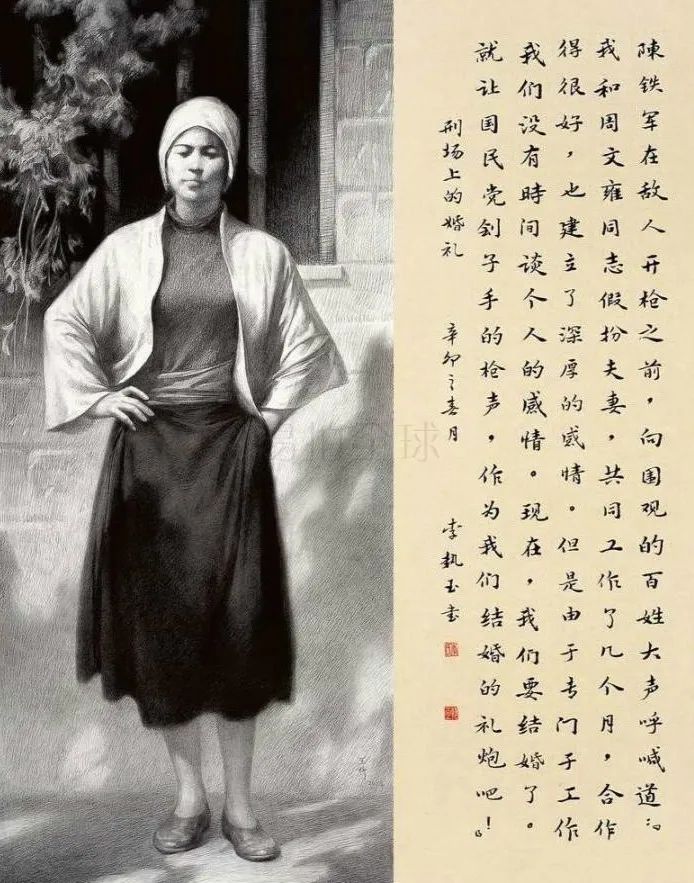 陳铁军在敌人开枪之前，向围观的百姓大声呼喊道：『
我和周文雍同志假扮夫妻，共同工作了几个月，合作
得很好，也建立了深厚的感情。但是由于专门于工作
我们没有時间谈个人的感情。现在，我们要结婚了。
就让国民党刽子手的枪声，作为我们结婚的礼炮吧！』
刑场上的婚礼 辛卯之春月 李執玉书
球